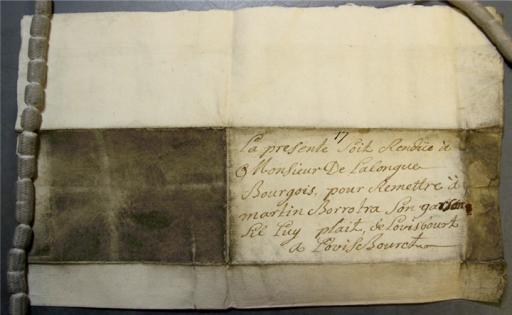 17
La presente Soit Rendüe à
Monsieur De Lalongue
Bourgois, pour Remettre à
martin Borrotra Son garson
Si Luy plait, de Lovisbourt
a LoviseBourct